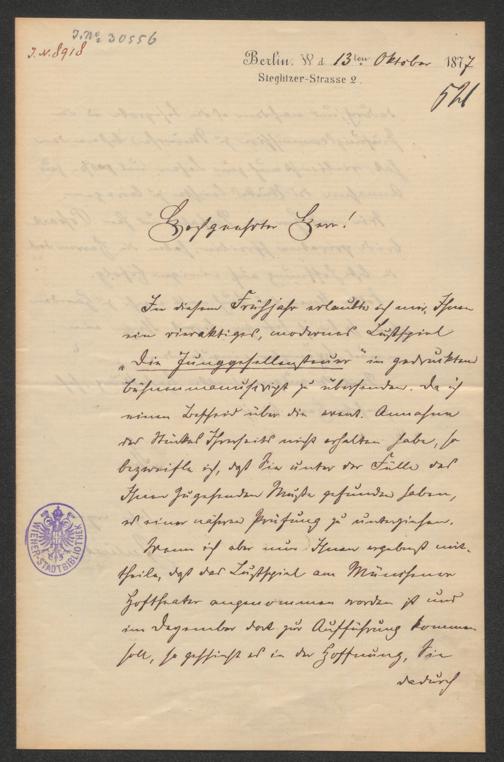 J.No 30556
J.N. 8918
Berlin. W d. 13ten Oktober 1877
Steglitzer-Strasse 2.
521
Hochgeehrter Herr!
In diesem Frühjahr erlaubte ich mir, Ihnen
ein vieraktiges, modernes Lustspiel
„Die Junggesellensteuer" in gedrucktem
Bühnenmanuskript zu übersenden. Da ich
einen Bescheid über die event. Annahme
des Stückes Ihrerseits nicht erhalten habe, so
bezweifle ich, daß Sie unter der Fülle des
Ihnen Zugehenden Muße gefunden haben,
es einer näheren Prüfung zu unterziehen.
Wenn ich aber nun Ihnen ergebenst mit-
theile, daß das Lustspiel am Münchener
Hoftheater angenommen worden ist und
im Dezember dort zur Aufführung kommen
soll, so geschieht es in der Hoffnung, Sie
dadurch
WIENER-STADTBIBLIOTHEK